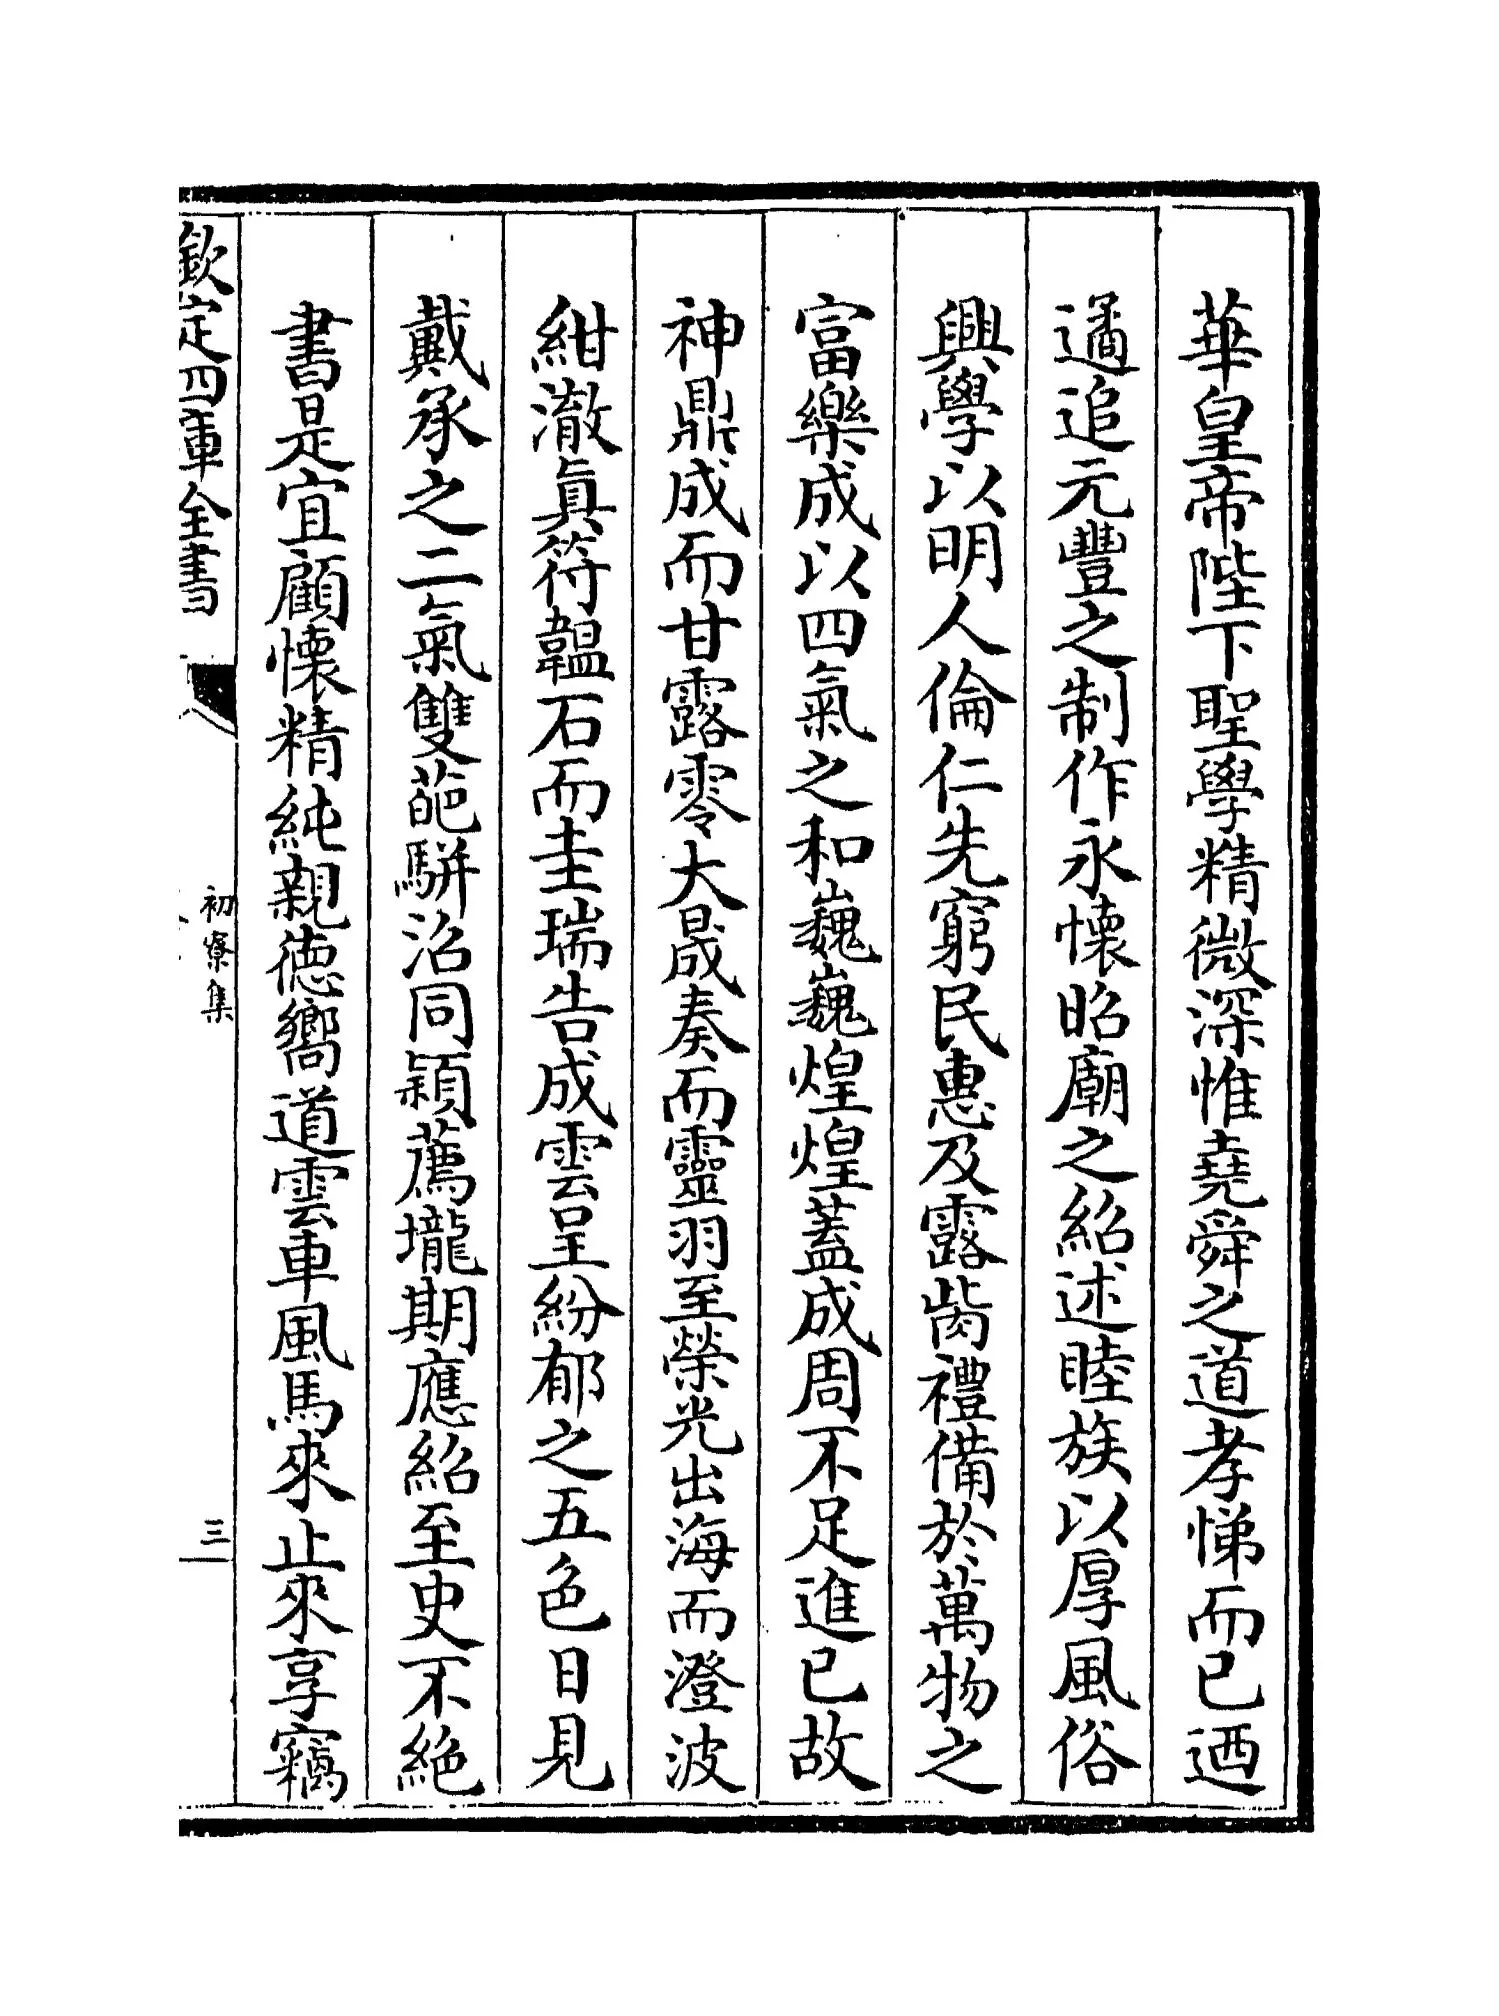 華皇帝陛下聖學精微深惟堯舜之道孝悌而已迺
遹追元豐之制作永懷昭廟之紹述睦族以厚風俗
興學以明人倫仁先窮民惠及露胔禮備於萬物之
富樂成以四氣之和巍巍煌煌蓋成周不足進已故
神鼎成而甘露零大晟奏而靈羽至榮光出海而澄波
紺澈真符韞石而圭瑞告成雲呈紛郁之五色日見
戴承之二氣雙葩駢沼同穎薦壠期應紹至史不絕
書是宜顧懷精純親德嚮道雲車風馬來止來享竊
欽定四庫全書
初寮集
三